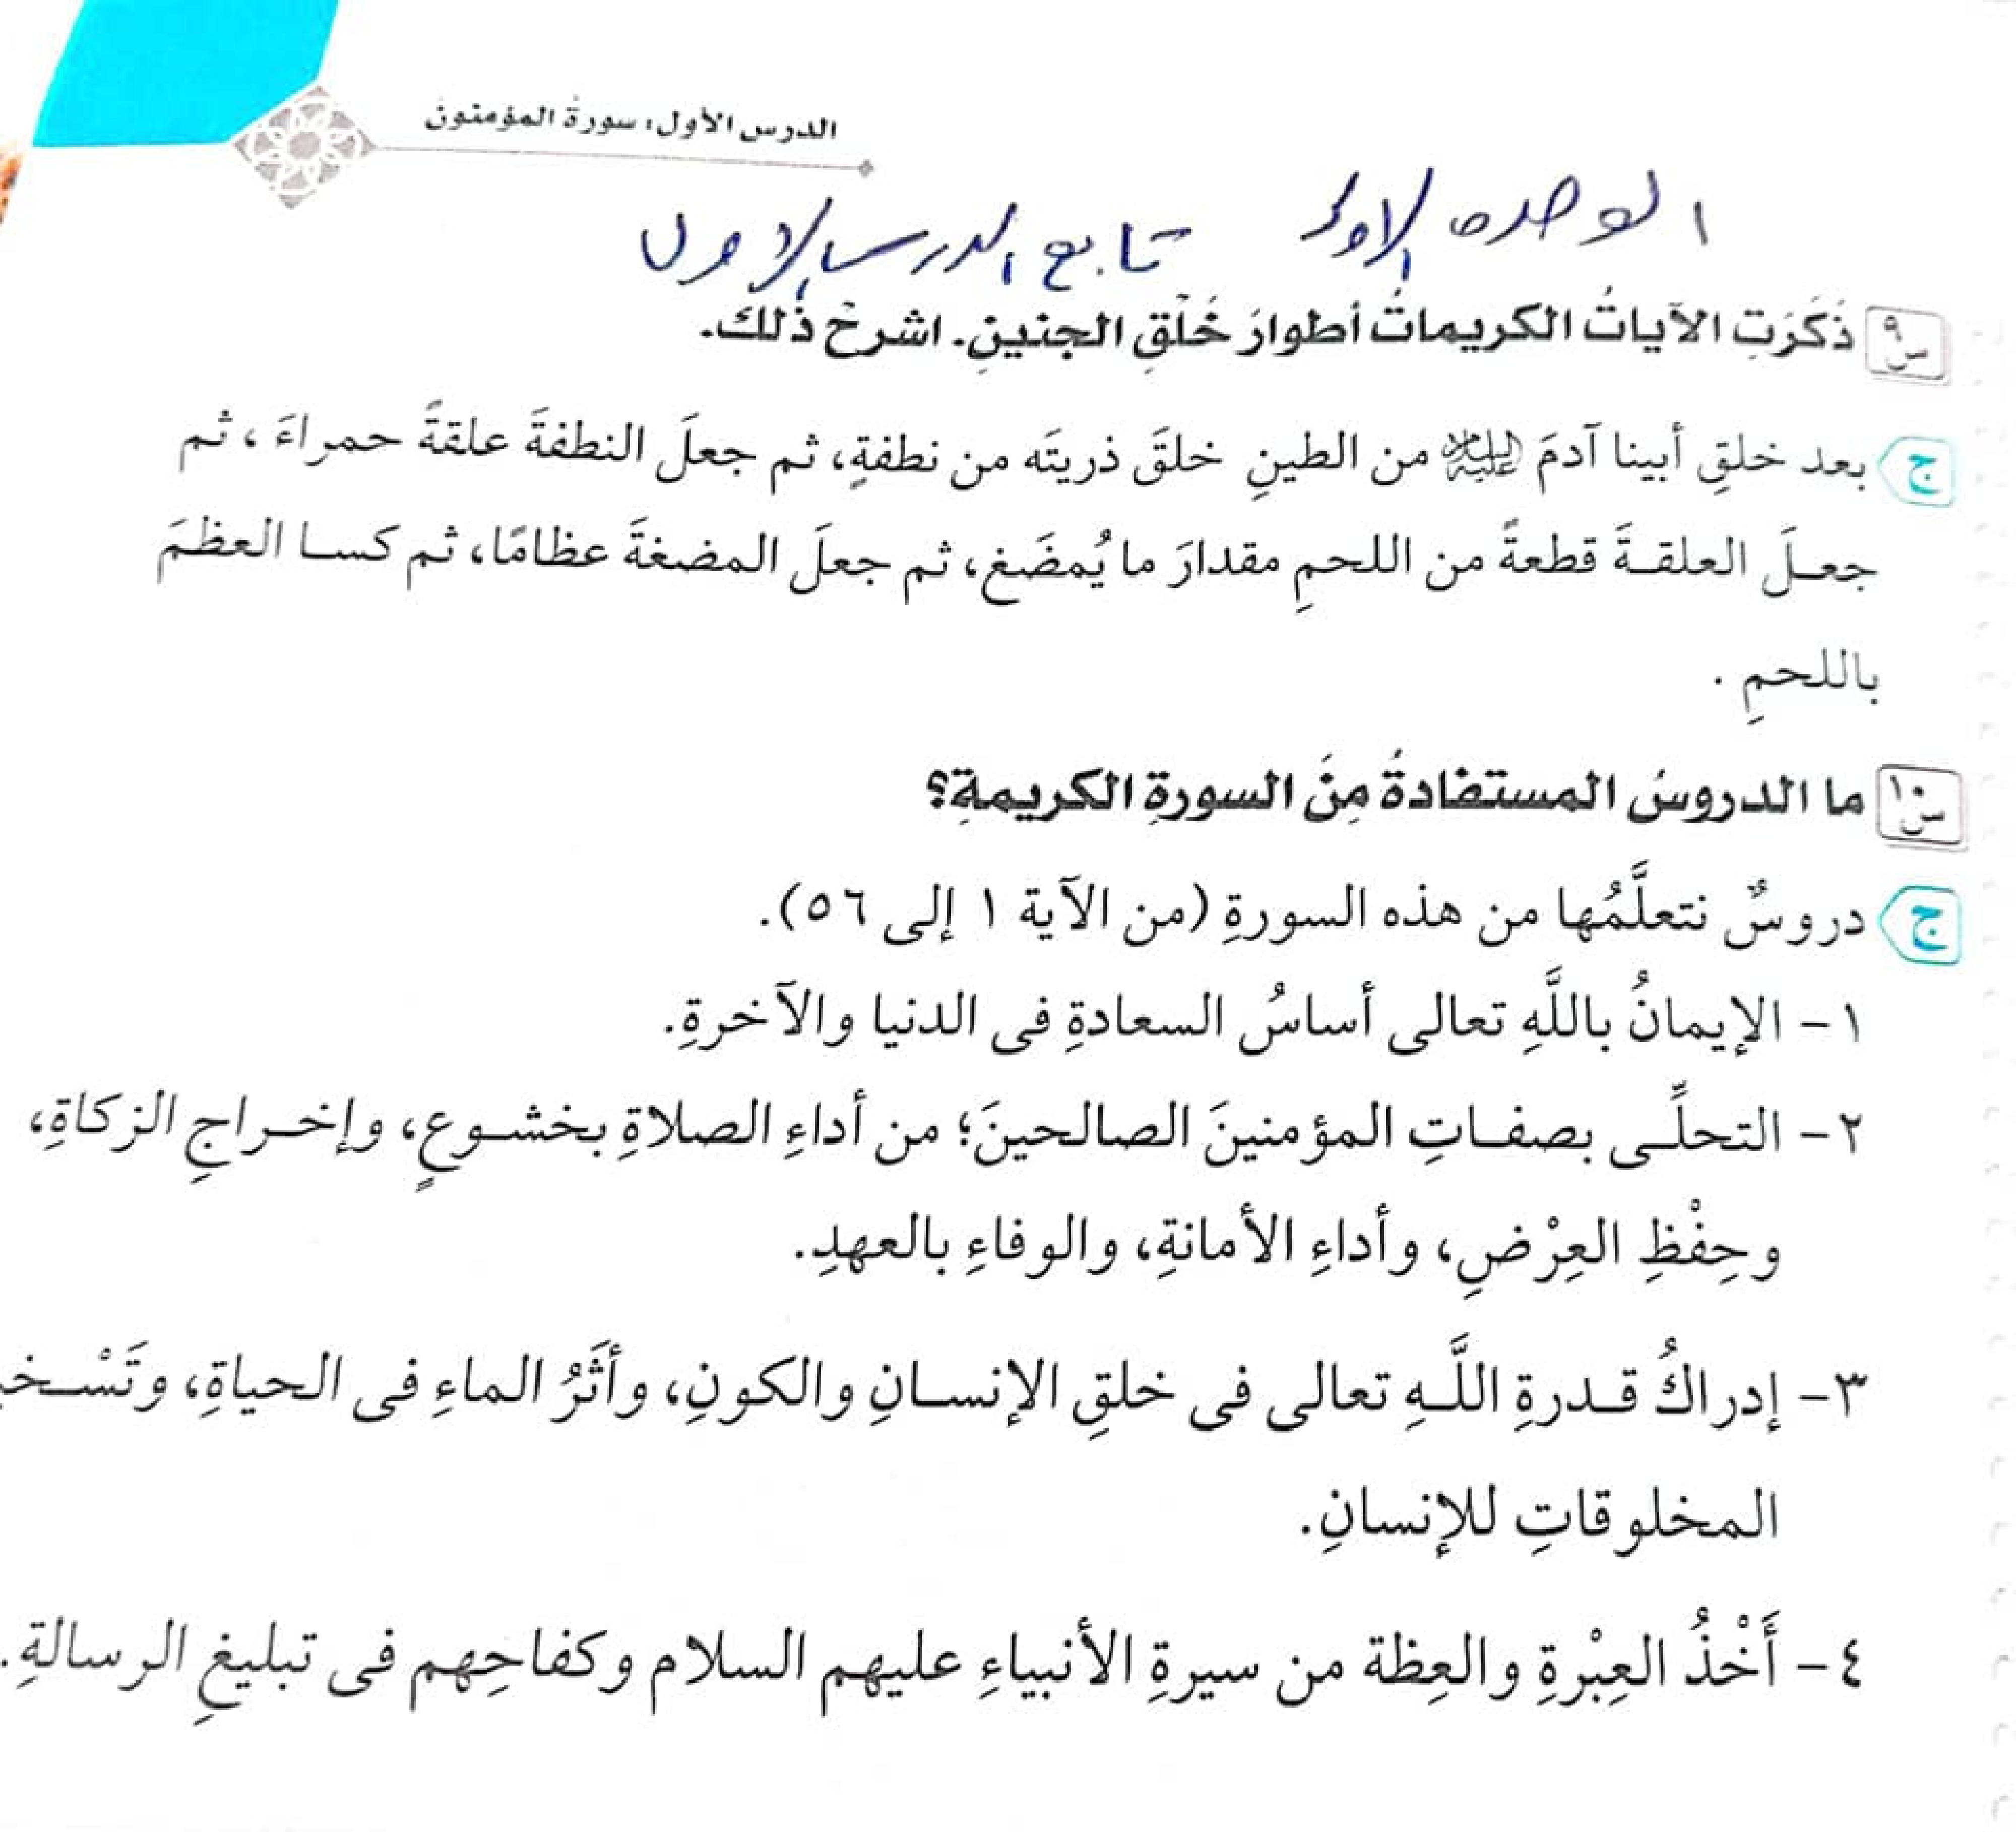 الدرس الأول: سورة المؤمنون
الوحده الاولى تابع الدرس الاول
س٩ ذَكَرَتِ الآياتُ الكريماتُ أطوارَ خَلْقِ الجنينِ. اشرحْ ذلكَ.
ج بعد خلقِ أبينا آدمَ عليه السلام من الطينِ خلقَ ذريتَه من نطفةٍ، ثم جعلَ النطفةَ علقةً حمراءَ، ثم
جعـلَ العلقـةَ قطعةً من اللحمِ مقدارَ ما يُمضَغ، ثم جعلَ المضغةَ عظامًا، ثم كسـا العظمَ
باللحمِ .
س١٠ ما الدروسُ المستفادةُ مِنَ السورةِ الكريمةِ؟
ج دروسٌ نتعلَّمُها من هذه السورةِ (من الآية ١ إلى ٥٦).
١- الإيمانُ باللَّهِ تعالى أساسُ السعادةِ فى الدنيا والآخرةِ.
٢- التحلِّـى بصفـاتِ المؤمنينَ الصالحينَ؛ من أداءِ الصلاةِ بخشـوعٍ، وإخـراجِ الزكاةِ،
وحِفْظِ العِرْضِ، وأداءِ الأمانةِ، والوفاءِ بالعهدِ.
٣- إدراكُ قـدرةِ اللَّـهِ تعالى فى خلقِ الإنسـانِ والكونِ، وأثَرُ الماءِ فى الحياةِ، وتَسْـخي
المخلوقاتِ للإنسانِ.
٤- أَخْذُ العِبْرةِ والعِظة من سيرةِ الأنبياءِ عليهم السلام وكفاحِهم فى تبليغِ الرسالةِ.